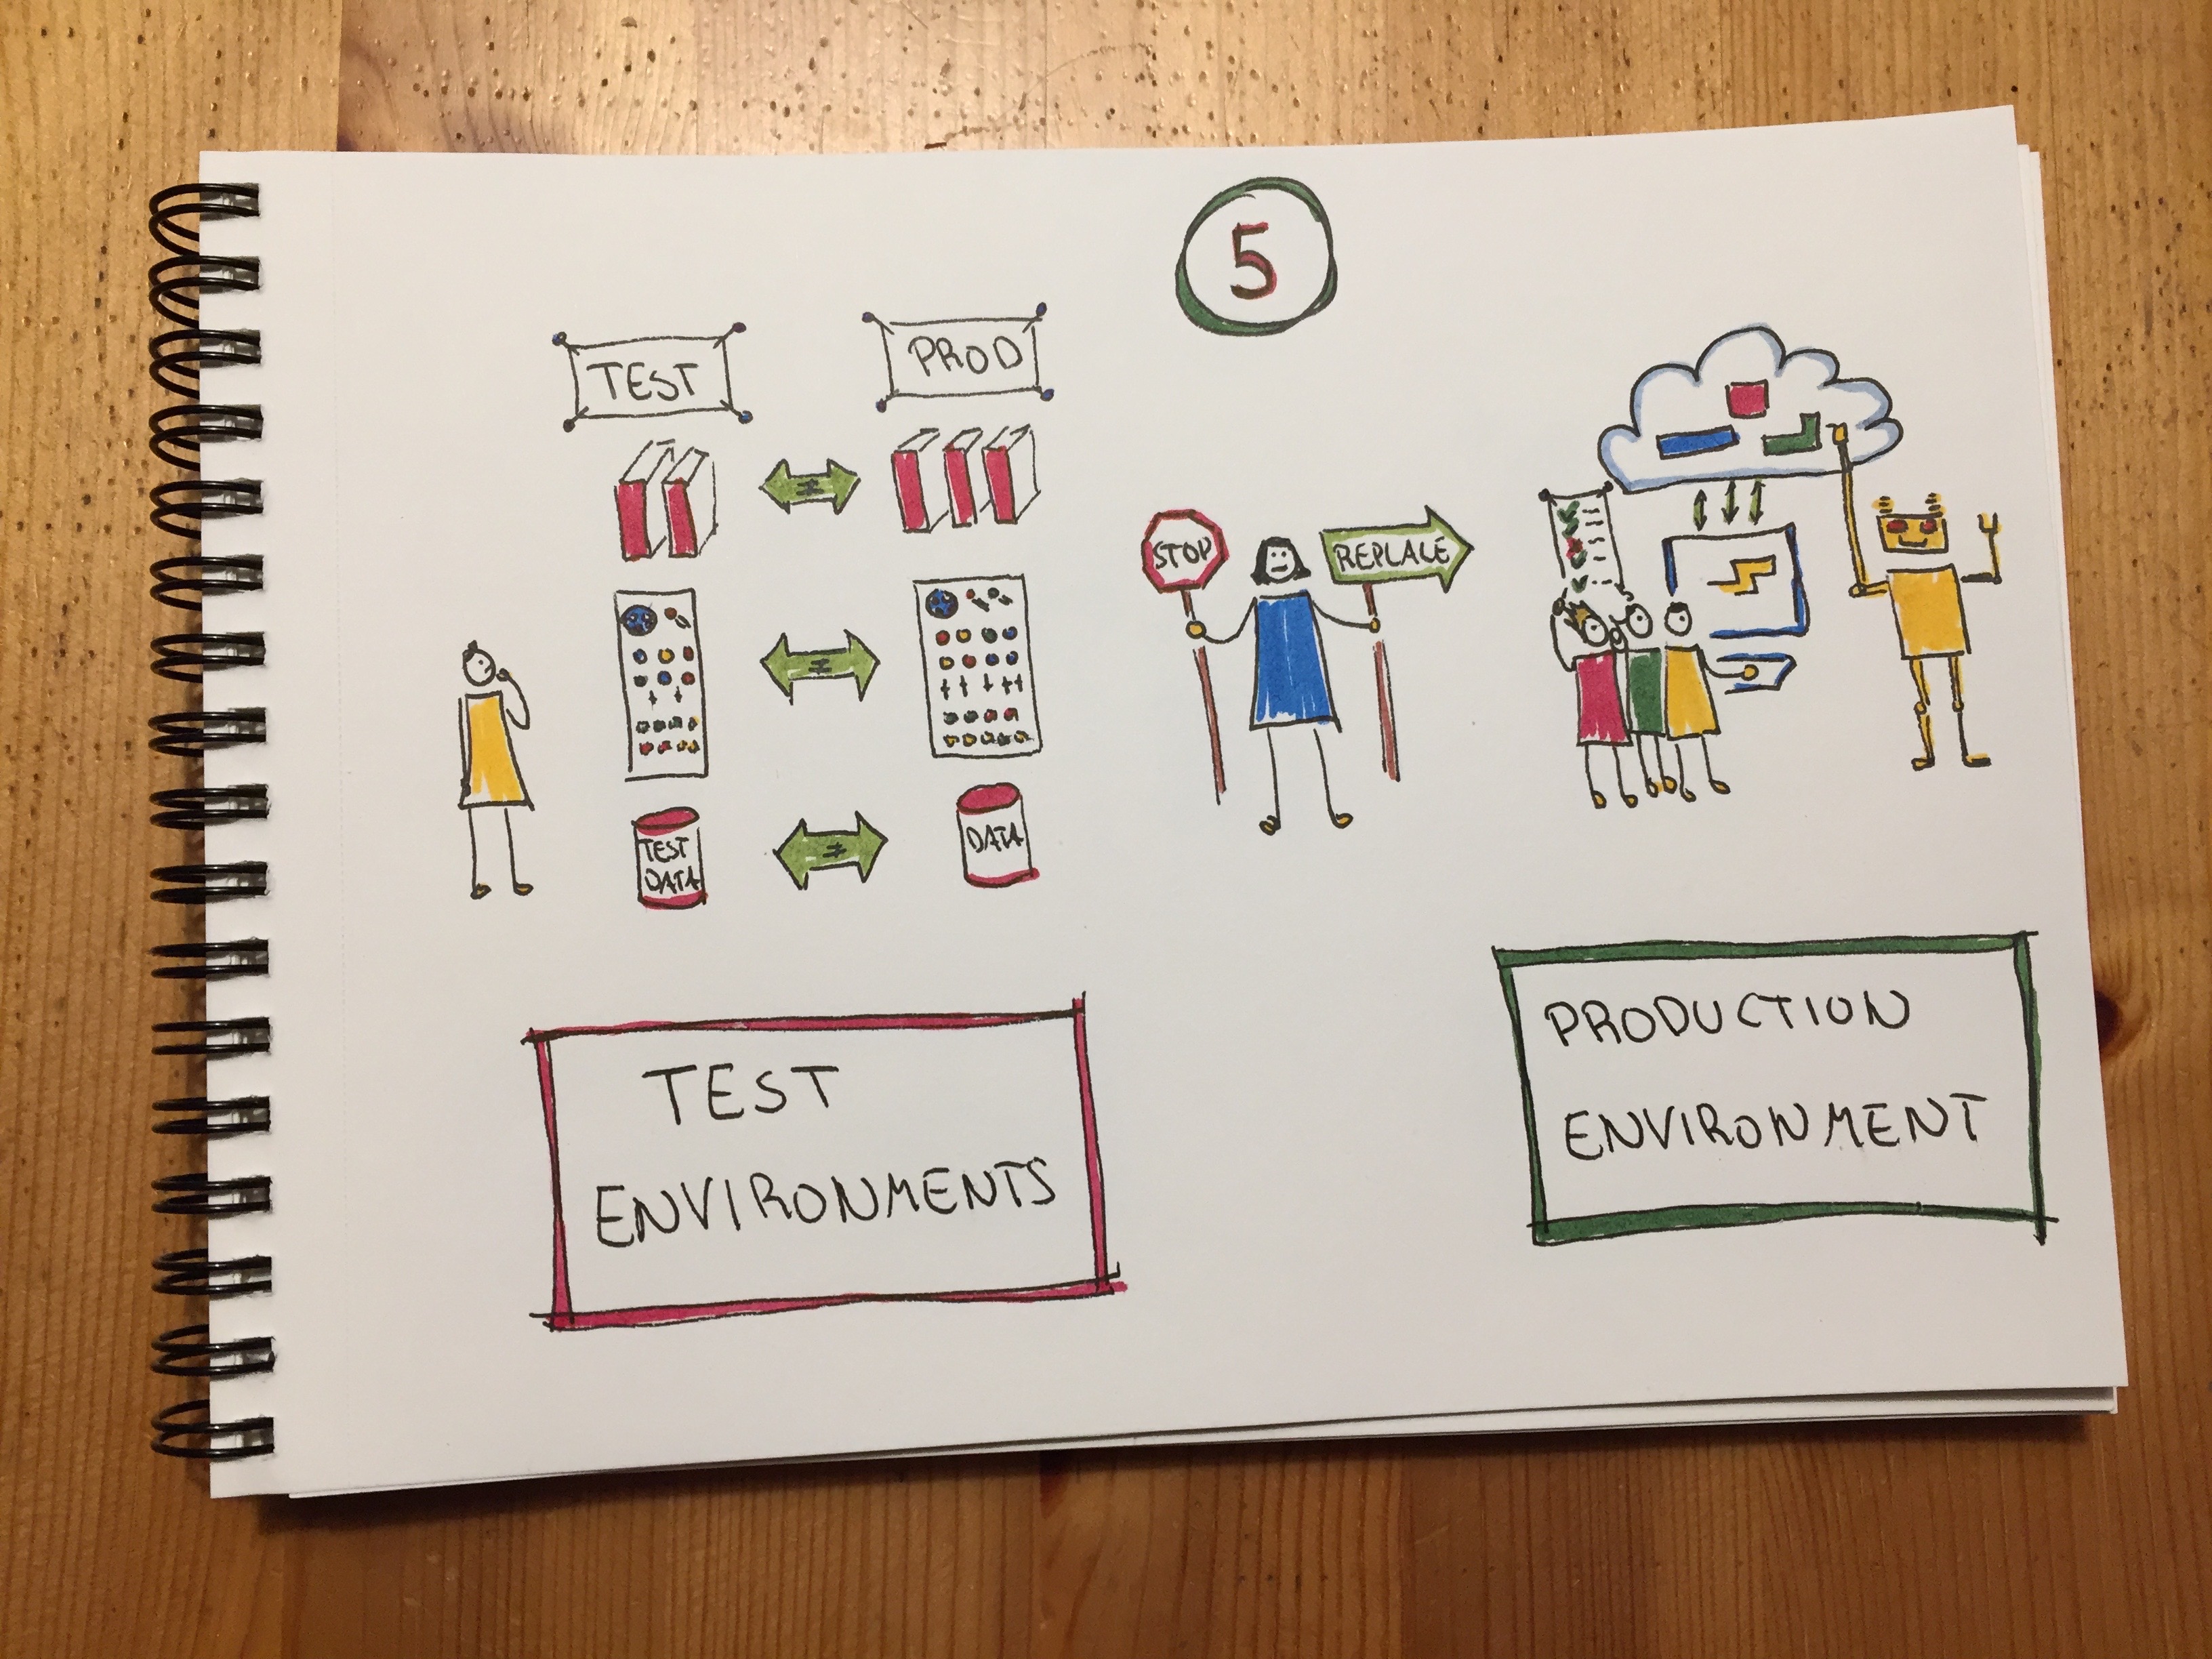 5
TEST
PROD
≠
≠
≠
TEST
DATA
DATA
STOP
REPLACE
TEST
ENVIRONMENTS
PRODUCTION
ENVIRONMENT